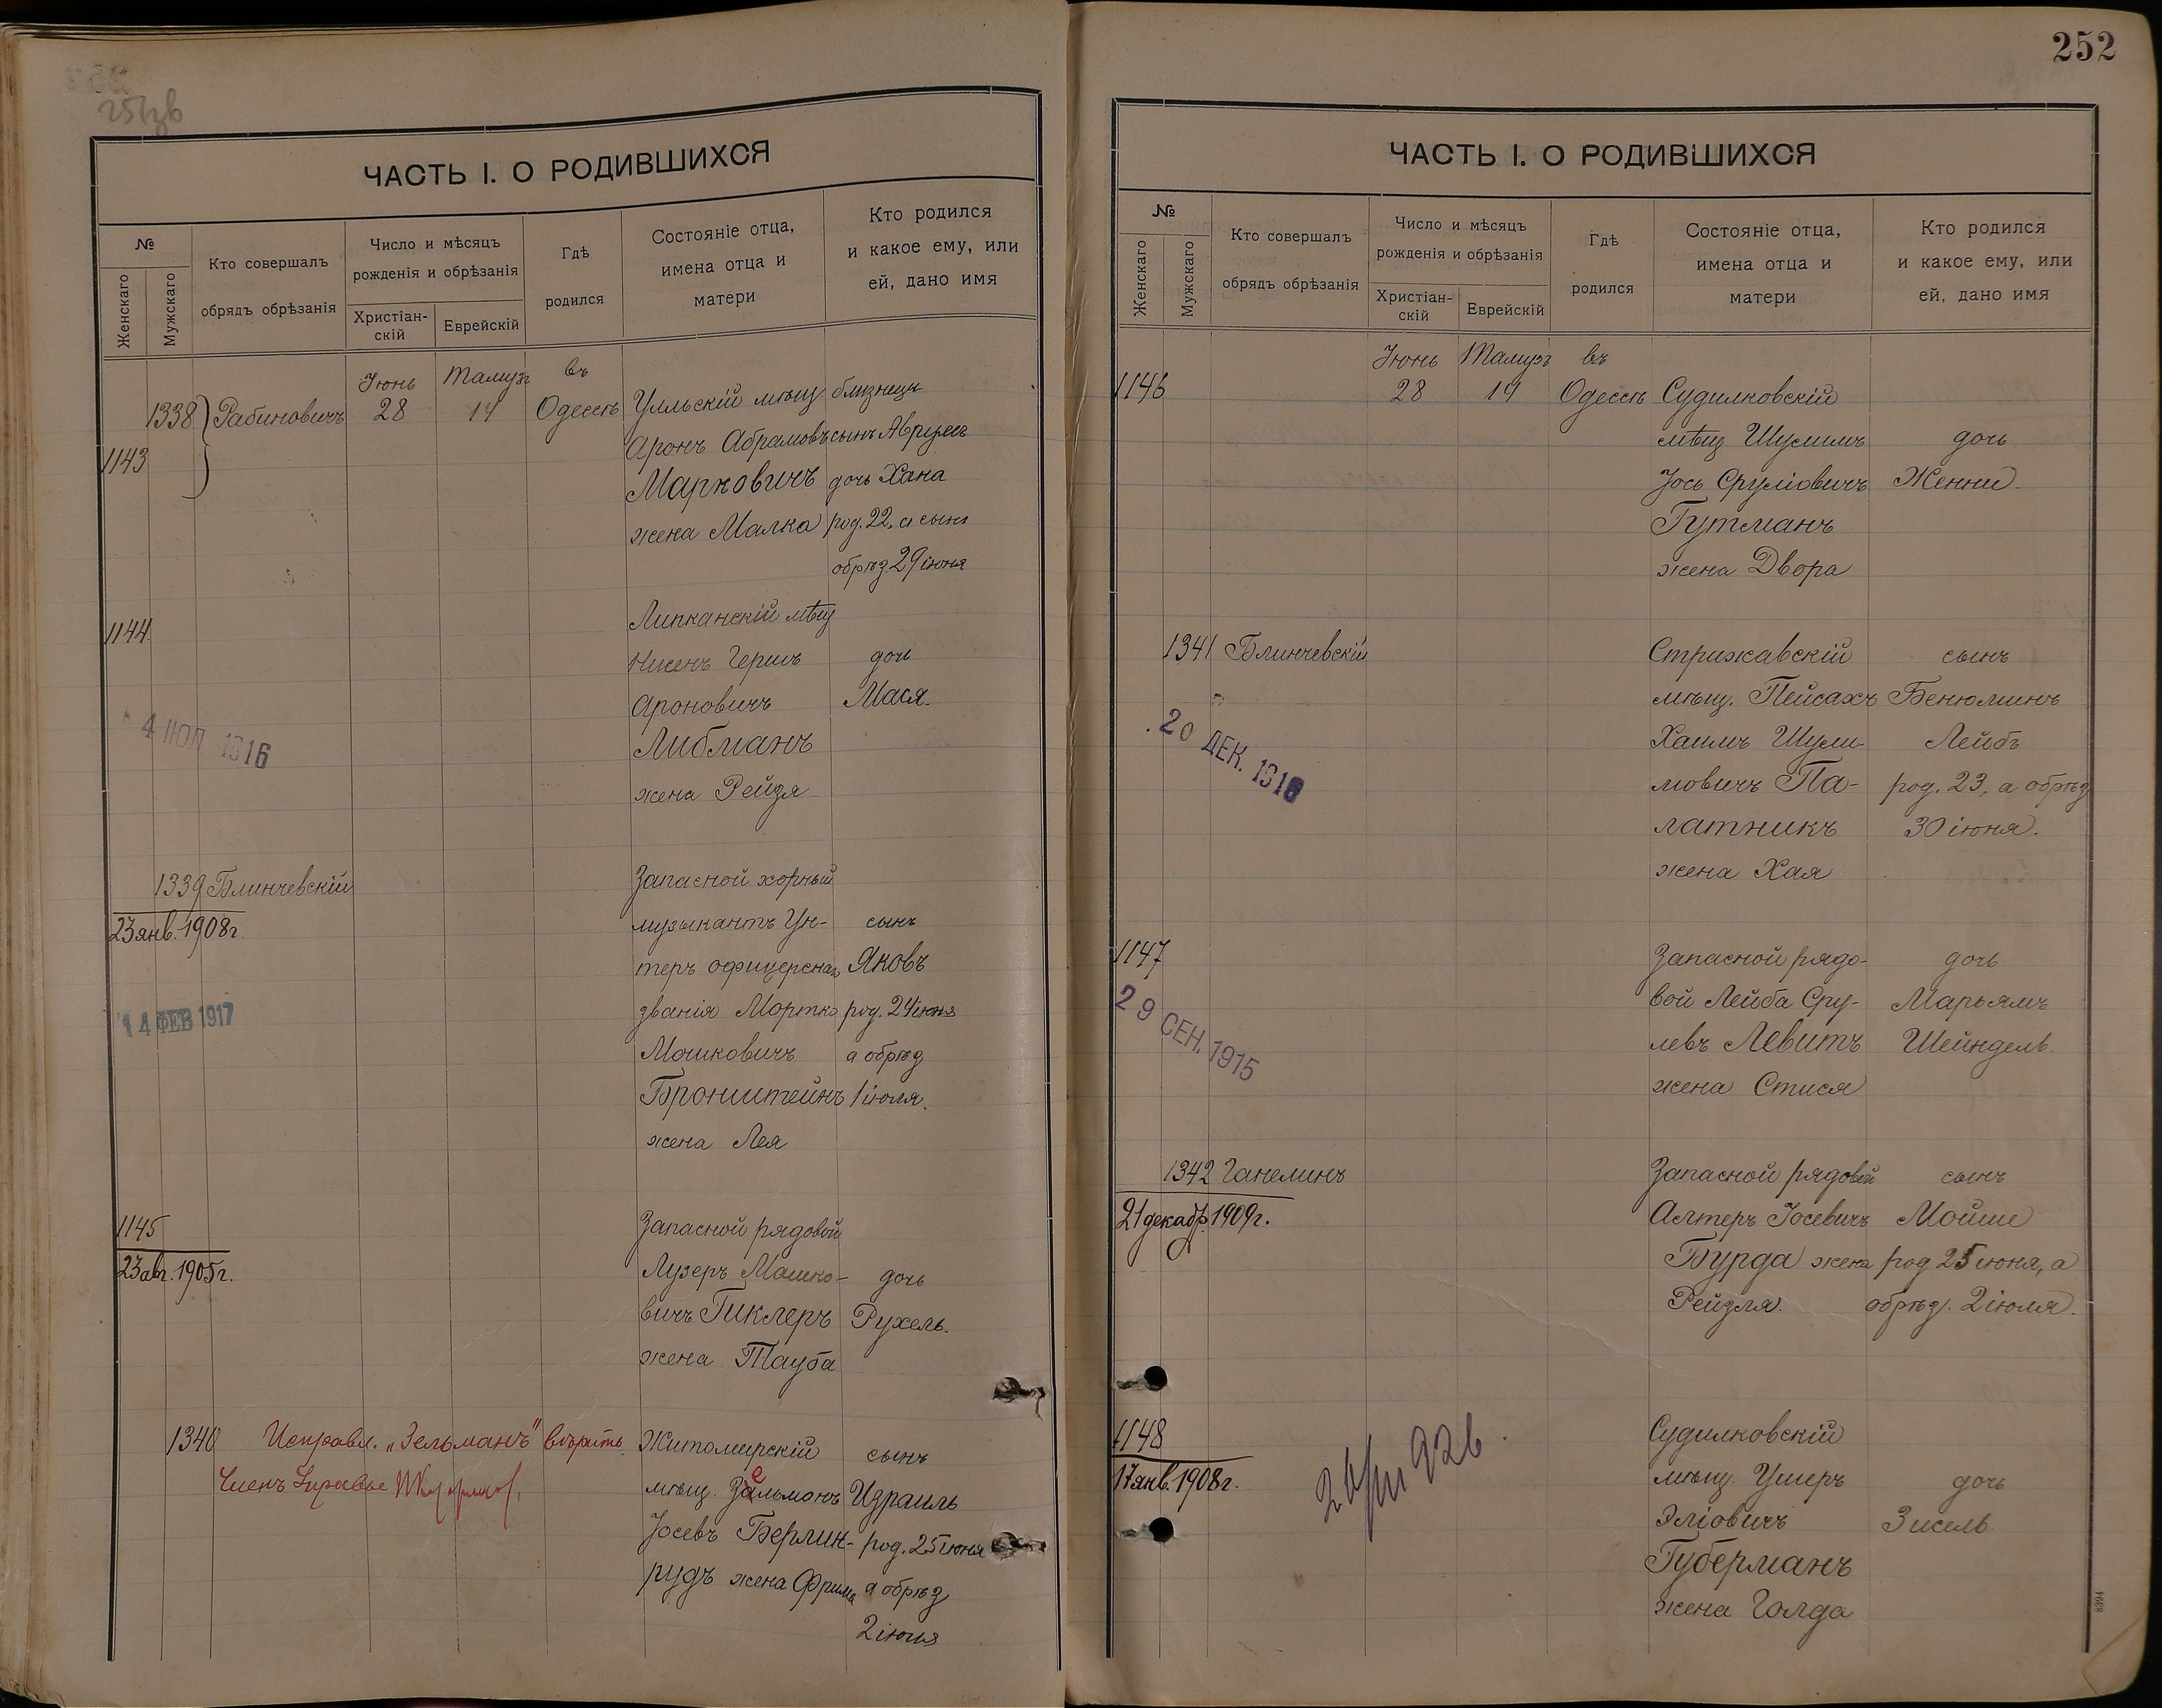 252
ЧАСТЬ I. О РОДИВШИХСЯ
№
Женскаго
Мужскаго
Кто совершалъ
обрядъ обрѣзанія
Число и мѣсяцъ
рожденія и обрѣзанія
Христіан-
скій
Еврейскій
Гдѣ
родился
Состояніе отца,
имена отца и
матери
Кто родился
и какое ему, или
ей, дано имя
Іюнь Тамузъ въ
1338 Рабиновичъ 28 14 Одессѣ Улльскій мѣщ. близнецы
Аронъ Абрамовъ сынъ Аврумъ
1143
Марковичъ дочь Хана
жена Малка род. 22, а сынъ
обрѣз 29 іюня
1144
Липканскій мѣщ
Нисенъ Гершъ дочь
Ароновичъ Мася.
Либманъ
жена Рейзя
4 ІЮЛ 1916
1339 Блинчевскій Запасной хорный
23 янв. 1908 г.
музыкантъ Ун- сынъ
теръ офицерскаго Яковъ
званія Мортко род. 24 іюня
14 ФЕВ 1917
Мошковичъ а обрѣз
Бронштейнъ 1 іюля.
жена Лея
1145 Запасной рядовой
23 авг. 1905 г.
Лузеръ Мошко- дочь
вичъ Гиклеръ Рухель.
жена Тауба
1340 Исправл. „Зельманъ" вѣрить. Житомирскій сынъ
Членъ Управы
мѣщ. Зельманъ Израиль
Іосевъ Берлин- род. 25 іюня
рудъ жена Фрима а обрѣз
2 іюля
ЧАСТЬ I. О РОДИВШИХСЯ
№
Женскаго
Мужскаго
Кто совершалъ
обрядъ обрѣзанія
Число и мѣсяцъ
рожденія и обрѣзанія
Христіан-
скій
Еврейскій
Гдѣ
родился
Состояніе отца,
имена отца и
матери
Кто родился
и какое ему, или
ей, дано имя
Іюнь Тамузъ въ
1146 28 14 Одессѣ Судилковскій
мѣщ Шулимъ дочь
Іось Сруліовичъ Женни.
Гутманъ
жена Двора
1341 Блинчевскій Стрижавскій сынъ
мѣщ. Пейсахъ Бенюминъ
20 ДЕК. 1916
Хаимъ Шули- Лейбъ
мовичъ Па- род. 23, а обрѣз
латникъ 30 іюня.
жена Хая
1147 Запасной рядо- дочь
вой Лейба Сру- Марьямъ
29 СЕН. 1915
левъ Левитъ Шейндель.
жена Стися
1342 Ганелинъ Запасной рядовой сынъ
21 декабр. 1909 г.
Алтеръ Іосевичъ Мойше
Бурда жена род 25 іюня, а
Рейзля. обрѣз. 2 іюля.
1148 Судилковскій
17 янв. 1908 г.
мѣщ. Ушеръ дочь
Эліовичъ Зисель
Губерманъ
жена Голда
8394